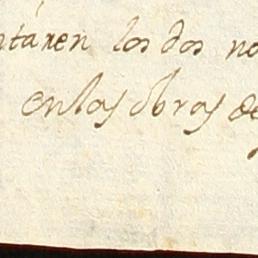 ntaren los dos no
en las obras de